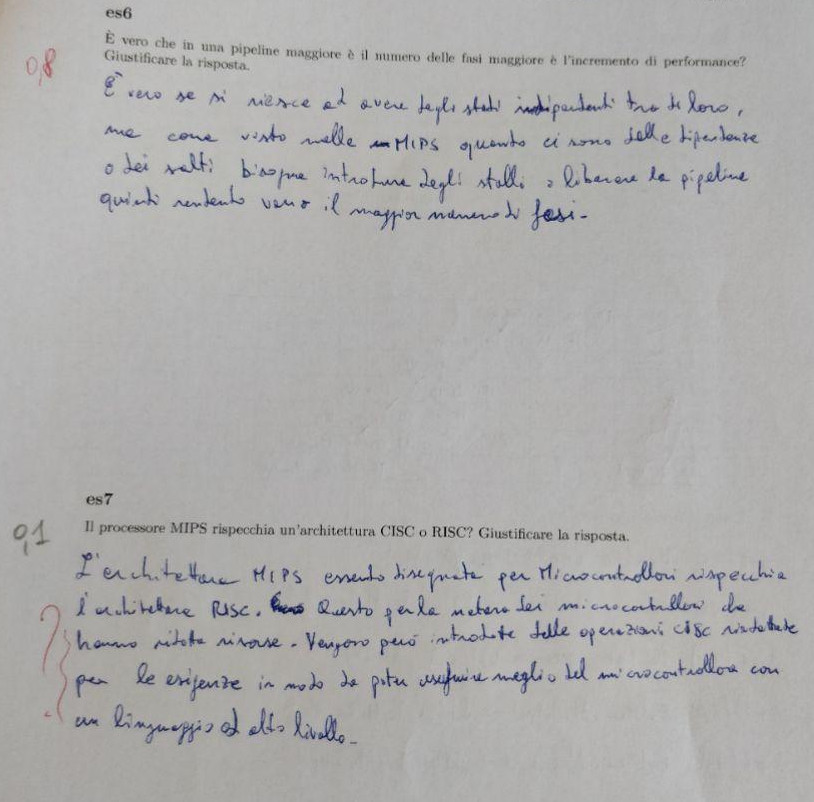 es6
È vero che in una pipeline maggiore è il numero delle fasi maggiore è l'incremento di performance?
Giustificare la risposta.
0,8
È vero se si riesce ad avere degli stadi indipendenti tra di loro,
ma come visto nella MIPS quando ci sono delle dipendenze
o dei salti bisogna introdurre degli stalli o liberare la pipeline
quindi rendendo vano il maggior numero di fasi.
es7
0,1
Il processore MIPS rispecchia un'architettura CISC o RISC? Giustificare la risposta.
L'architettura MIPS essendo disegnata per Microcontrollori rispecchia
l'architettura RISC. Questo per la natura dei microcontrollori che
? hanno ridotte risorse. Vengono però introdotte delle operazioni CISC riadattate
per le esigenze in modo da poter usufruire meglio del microcontrollore con
un linguaggio ad alto livello.